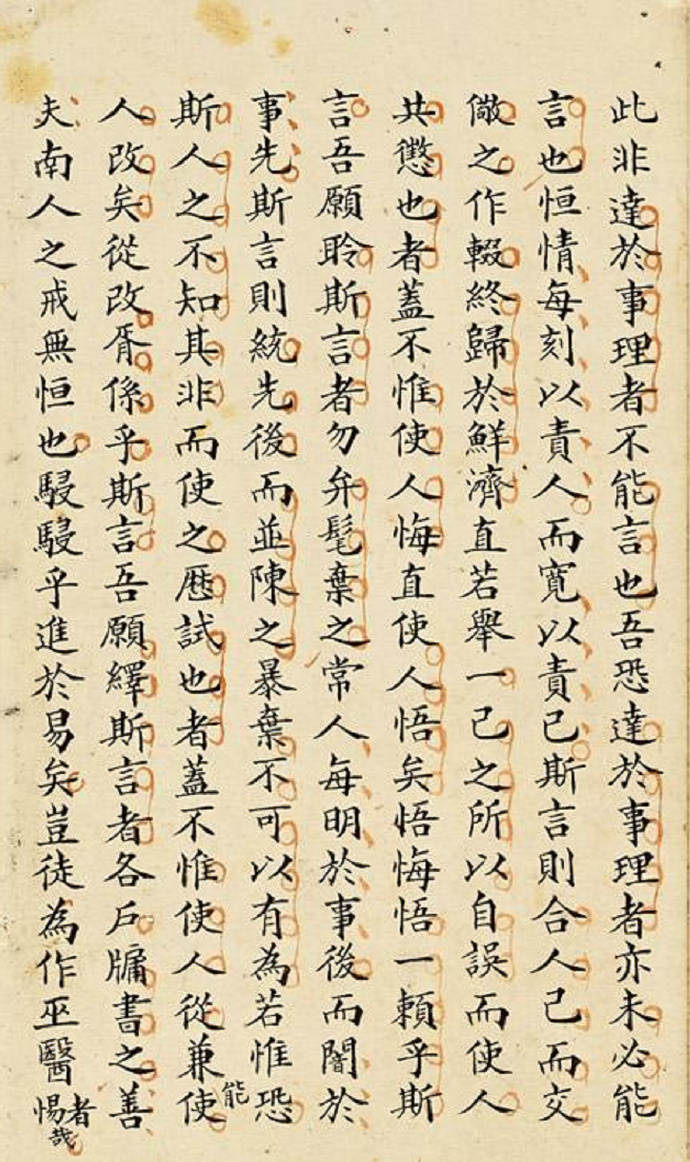 此非達於事理者不能言也吾恐達於事理者亦未必能
言也恒情每刻以責人而寬以責己斯言則合人己而交
儆之作輟終歸於鮮濟直若舉一己之所以自誤而使人
共懲也者蓋不惟使人悔直使人悟矣悟悔悟一賴乎斯
言吾願聆斯言者勿弁髦棄之常人每明於事後而闇於
事先斯言則統先後而並陳之暴棄不可以有為若惟恐
斯人之不知其非而使之歷試也者蓋不惟使人從兼能使
人改矣從改胥係乎斯言吾願繹斯言者各戶牖書之善
夫南人之戒無恒也駸駸乎進於易矣豈徒為作巫醫者惕哉